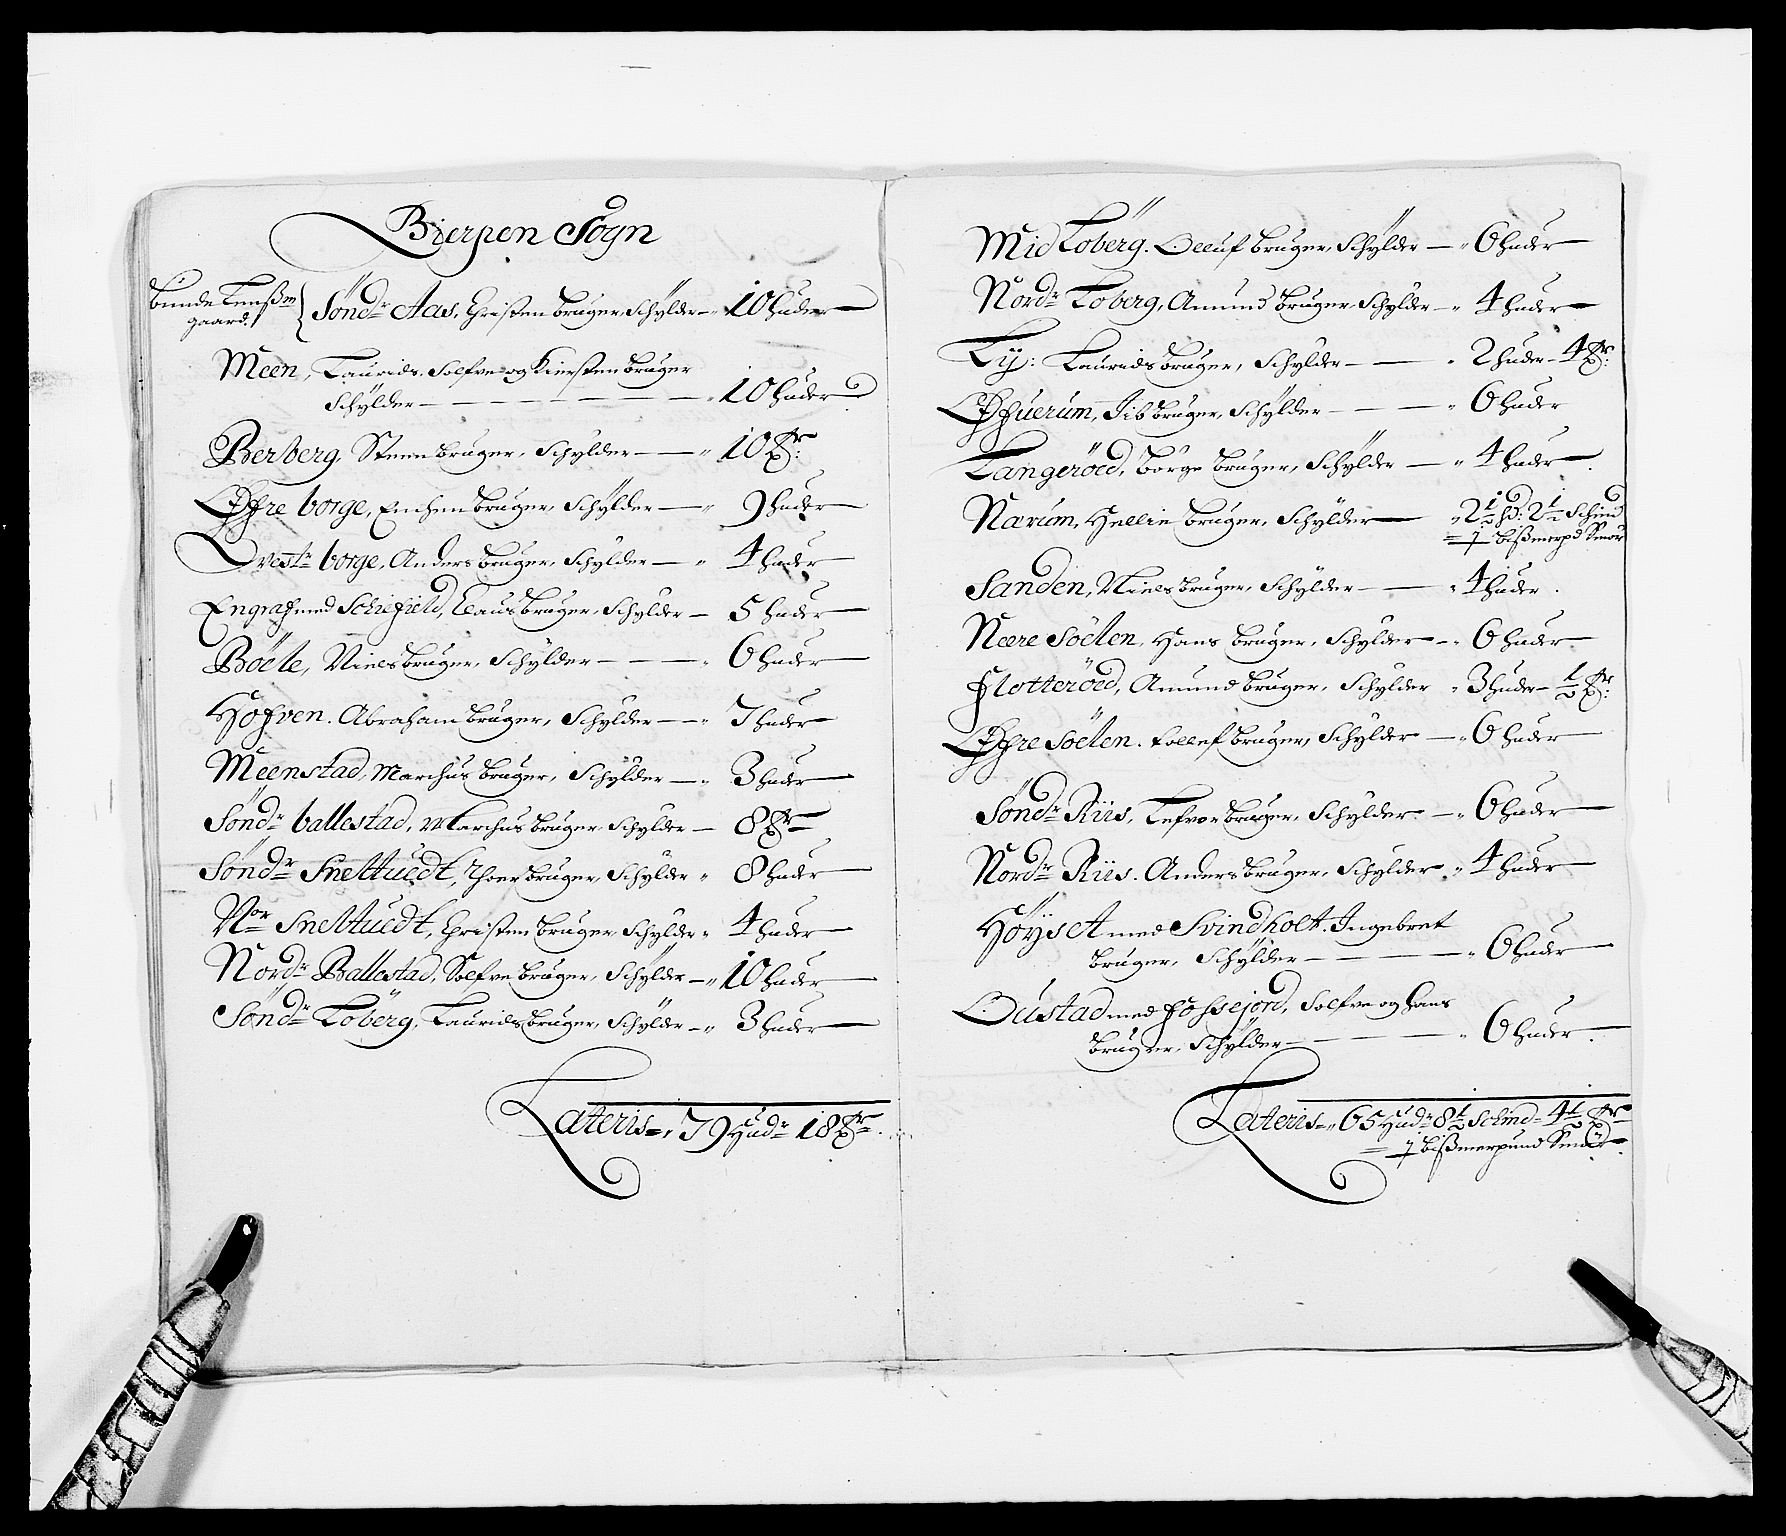 Bierpen Sogn
Bunde Lenßm
gaard.
Sønd.r Aas, Christen bruger, Schylder — 10 huder
Meen, Laurids, Solfve og Kiersten bruger
Schylder — 10 huder
Berberg, Steen bruger, Schylder — 10 Lpr:
Øffre borge, Enchen bruger, Schÿlder — 9 huder
Vestr borge, Anders bruger, Schylder — 4 huder
Engraf med Schiefield, Claus bruger, Schylder — 5 huder
Böele, Niels bruger, Schÿlder — 6 huder
Hofven. Abraham bruger, Schylder — 7 huder
Meenstad, Marchus bruger, Schÿlder — 3 huder
Sønd.r ballestad, Marchus bruger, Schylder — 8 Lpr
Sönd.r Sneltuedt, Thoer bruger, Schylder 8 huder
Nor Sneltuedt, Christen bruger, Schylder 4 huder
Nord.r Ballestad, Solfve bruger, Schÿlder — 10 huder
Sönd.r Loberg, Laurids bruger, Schÿlder — 3 huder
Lateris — 79 Hud.r 18 Lpr
Mid Löberg. Oeluf bruger, Schÿlder — 6 huder
Nord.r Loberg, Amund bruger, Schylder — 4 huder
Lÿ: Laurids bruger, Schylder — 2 huder — 4 Lpr:
Øffuerum, Jib bruger, Schÿlder — 6 huder
Langeröed, börge bruger, Schÿlder — 4 huder
Nærum, Hellie bruger, Schÿlder 2½ hd: 2½ Schind
1 bißmerpd Smör
Sanden, Niels bruger, Schÿlder — 4 huder.
Nære Söelen, Hans bruger, Schylder — 6 huder
Flotteröed, Amund bruger, Schylder 3 huder — ½ Lpr:
Øffre Söelen. Follef bruger, Schÿlder — 6 huder
Sönd.r Riis, Lefvor bruger, Schylder — 6 huder
Nord.r Riis. Anders bruger, Schylder 4 huder
Höÿset med Svindholt. Ingebret
bruger, Schÿlder — 6 huder
Oustad med Fossejord, Solfve og Hans
bruger, Schÿlder — 6 huder.
Lateris — 65 Hud.r 8½ Schind — 4½ Lpr
1 bißmerpund Smör